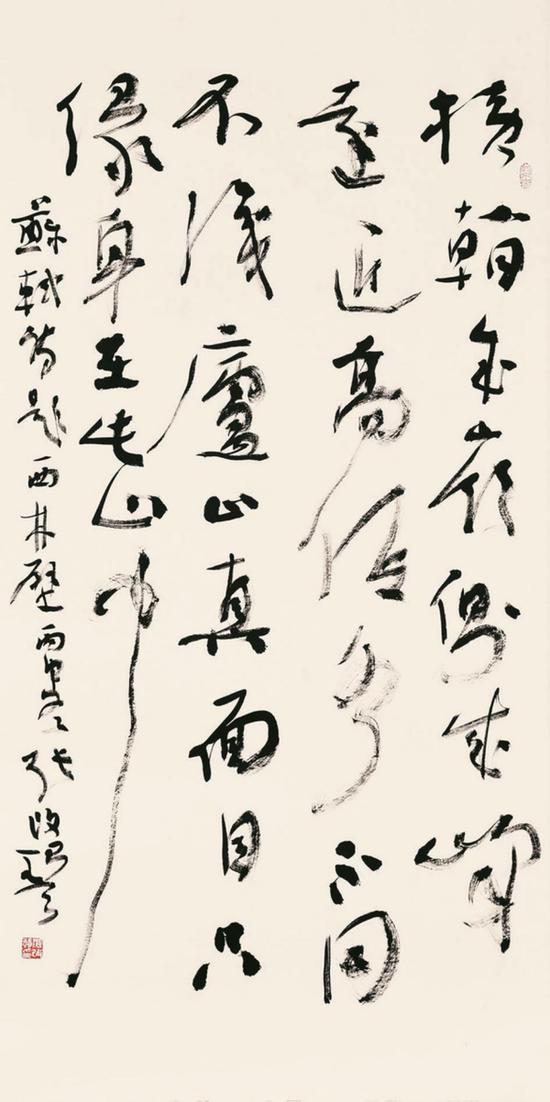 橫看成嶺側成峰
遠近高低各不同
不識廬山真面目只
緣身在此山中
蘇軾詩題西林壁丙申張改琴